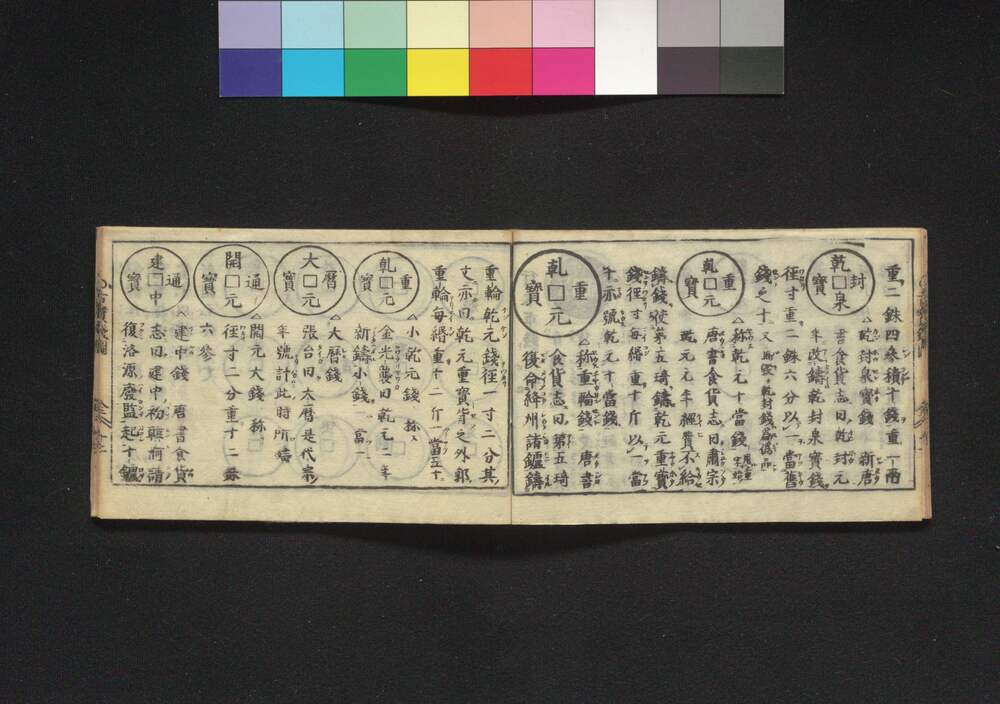 重二銖四參積十錢重一兩
乾封泉寶
△乾封泉寶錢 新唐
書食貨志曰乾封元
年改鑄乾封泉寶錢
徑寸重二銖六分以一當舊
錢之十
乾元重寶
△称乾元十當錢
唐書食貨志曰肅宗
乾元元年經費不給
鑄錢使第五琦鑄乾元重寶
錢徑寸每緡重十斤以一當
十亦號乾元十當錢
乾元重寶
△称重輪錢 唐書
食貨志曰第五琦
復命絳州諸鑪鑄
重輪乾元錢徑一寸二分其
文亦曰乾元重寶背之外郭
重輪每緡重十二斤 當五十
乾元重寶
△小乾元錢 称
金光襲曰乾元二年
新鑄小錢 當一
大曆元寶
△大曆錢
張台曰大曆是代宗
年號計此時所鑄
開元通寶
△開元大錢 称
徑寸二分重十二銖
六參
建中通寶
△建中錢 唐書食貨
志曰建中初韓洄請
復洛源廢監起十鑪